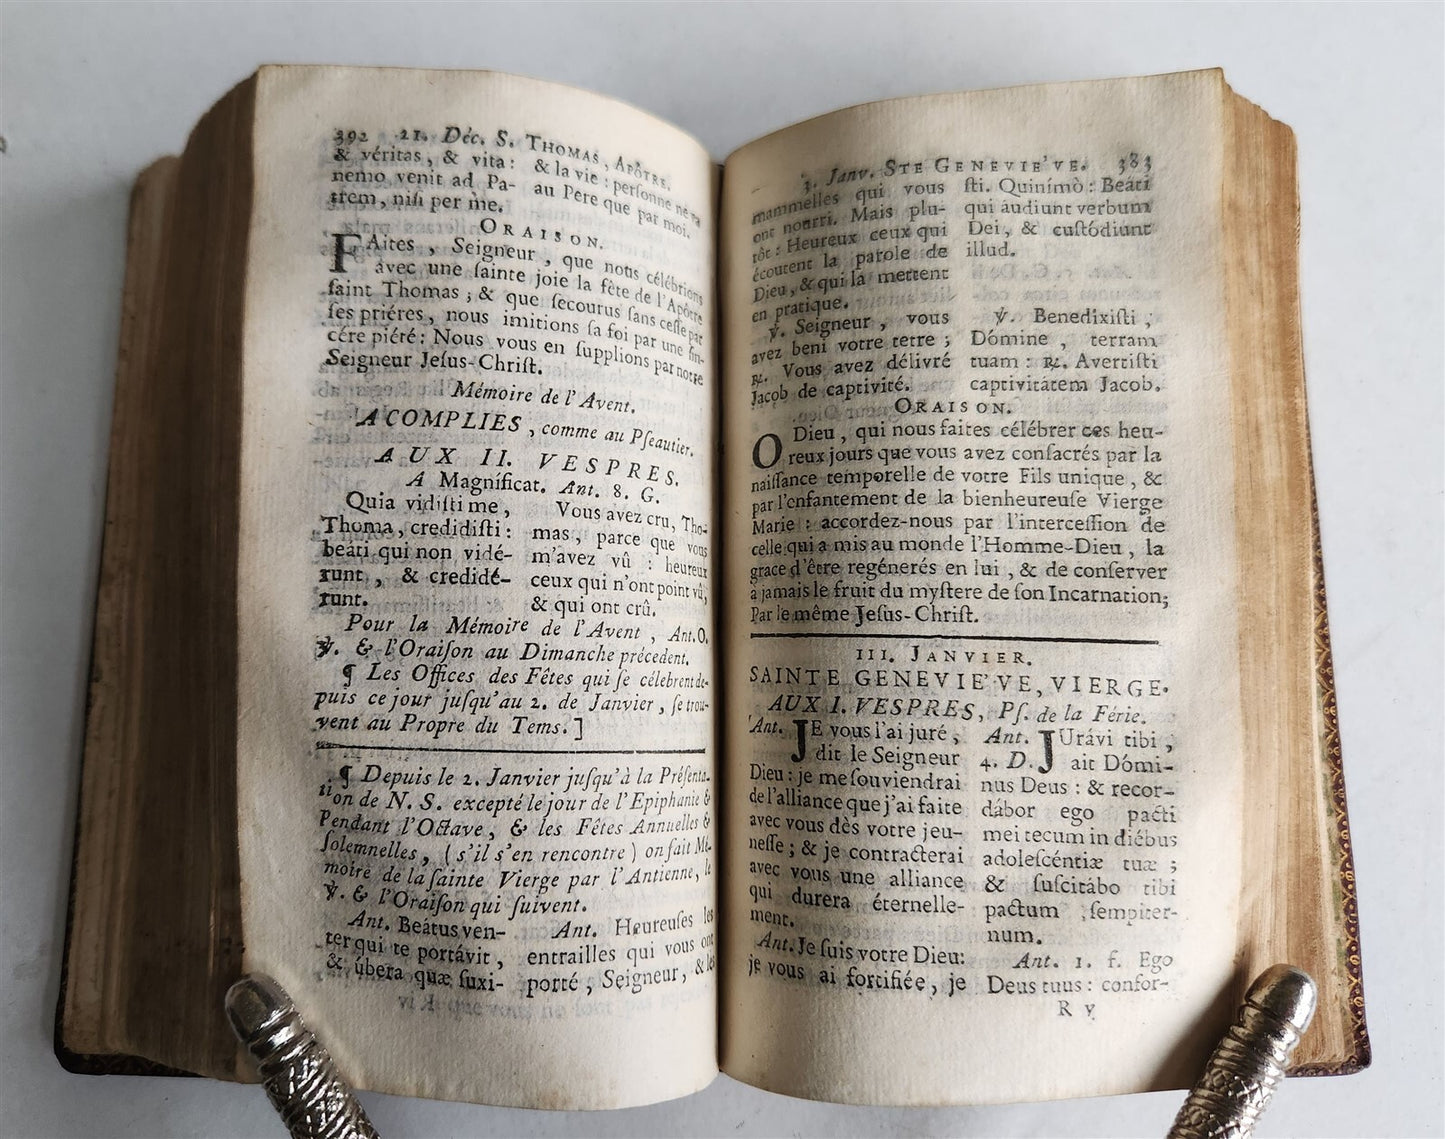 392 21. Déc. S. THOMAS, APÔTRE.
& véritas, & vita :
nemo venit ad Pa-
trem, nisi per me.
& la vie : personne ne va
au Pere que par moi.
ORAISON.
FAites, Seigneur, que nous célébrions
avec une sainte joie la fête de l'Apôtre
saint Thomas ; & que secourus sans cesse par
ses priéres, nous imitions sa foi par une sin-
cére piété : Nous vous en supplions par notre
Seigneur Jesus-Christ.
Mémoire de l'Avent.
A COMPLIES, comme au Pseautier.
AUX II. VESPRES.
A Magníficat. Ant. 8. G.
Quia vidisti me,
Thoma, credidisti :
beáti qui non vidé-
runt, & credidé-
runt.
Vous avez cru, Tho-
mas, parce que vous
m'avez vû : heureux
ceux qui n'ont point vû,
& qui ont crû.
Pour la Mémoire de l'Avent, Ant. O.
℣. & l'Oraison au Dimanche précedent.
¶ Les Offices des Fêtes qui se célebrent de-
puis ce jour jusqu'au 2. de Janvier, se trou-
vent au Propre du Tems. ]
¶ Depuis le 2. Janvier jusqu'à la Présenta-
tion de N. S. excepté le jour de l'Epiphanie &
Pendant l'Octave, & les Fêtes Annuelles &
solemnelles, ( s'il s'en rencontre ) on fait Mé-
moire de la sainte Vierge par l'Antienne, le
℣. & l'Oraison qui suivent.
Ant. Beátus ven-
ter qui te portávit,
& úbera quæ suxi-
Ant. Heureuses les
entrailles qui vous ont
porté, Seigneur, & les
3. Janv. STE GENEVIE'VE. 383
mammelles qui vous
ont nourri. Mais plu-
tôt : Heureux ceux qui
écoutent la parole de
Dieu, & qui la mettent
en pratique.
℣. Seigneur, vous
avez beni votre terre ;
℟. Vous avez délivré
Jacob de captivité.
sti. Quinímò : Beáti
qui áudiunt verbum
Dei, & custódiunt
illud.
℣. Benedixisti,
Dómine, terram
tuam : ℟. Avertisti
captivitátem Jacob.
ORAISON.
O Dieu, qui nous faites célébrer ces heu-
reux jours que vous avez consacrés par la
naissance temporelle de votre Fils unique, &
par l'enfantement de la bienheureuse Vierge
Marie : accordez-nous par l'intercession de
celle qui a mis au monde l'Homme-Dieu, la
grace d'être regénerés en lui, & de conserver
à jamais le fruit du mystere de son Incarnation ;
Par le même Jesus-Christ.
III. JANVIER.
SAINTE GENEVIE'VE, VIERGE.
AUX I. VESPRES, Ps. de la Férie.
Ant. JE vous l'ai juré,
dit le Seigneur
Dieu : je me souviendrai
de l'alliance que j'ai faite
avec vous dès votre jeu-
nesse ; & je contracterai
avec vous une alliance
qui durera éternelle-
ment.
Ant. Je suis votre Dieu :
je vous ai fortifiée, je
Ant. JUrávi tibi,
4. D. ait Dómi-
nus Deus : & recor-
dábor ego pacti
mei tecum in diébus
adolescéntiæ tuæ ;
& suscitábo tibi
pactum sempiter-
num.
Ant. 1. f. Ego
Deus tuus : confor-
R v